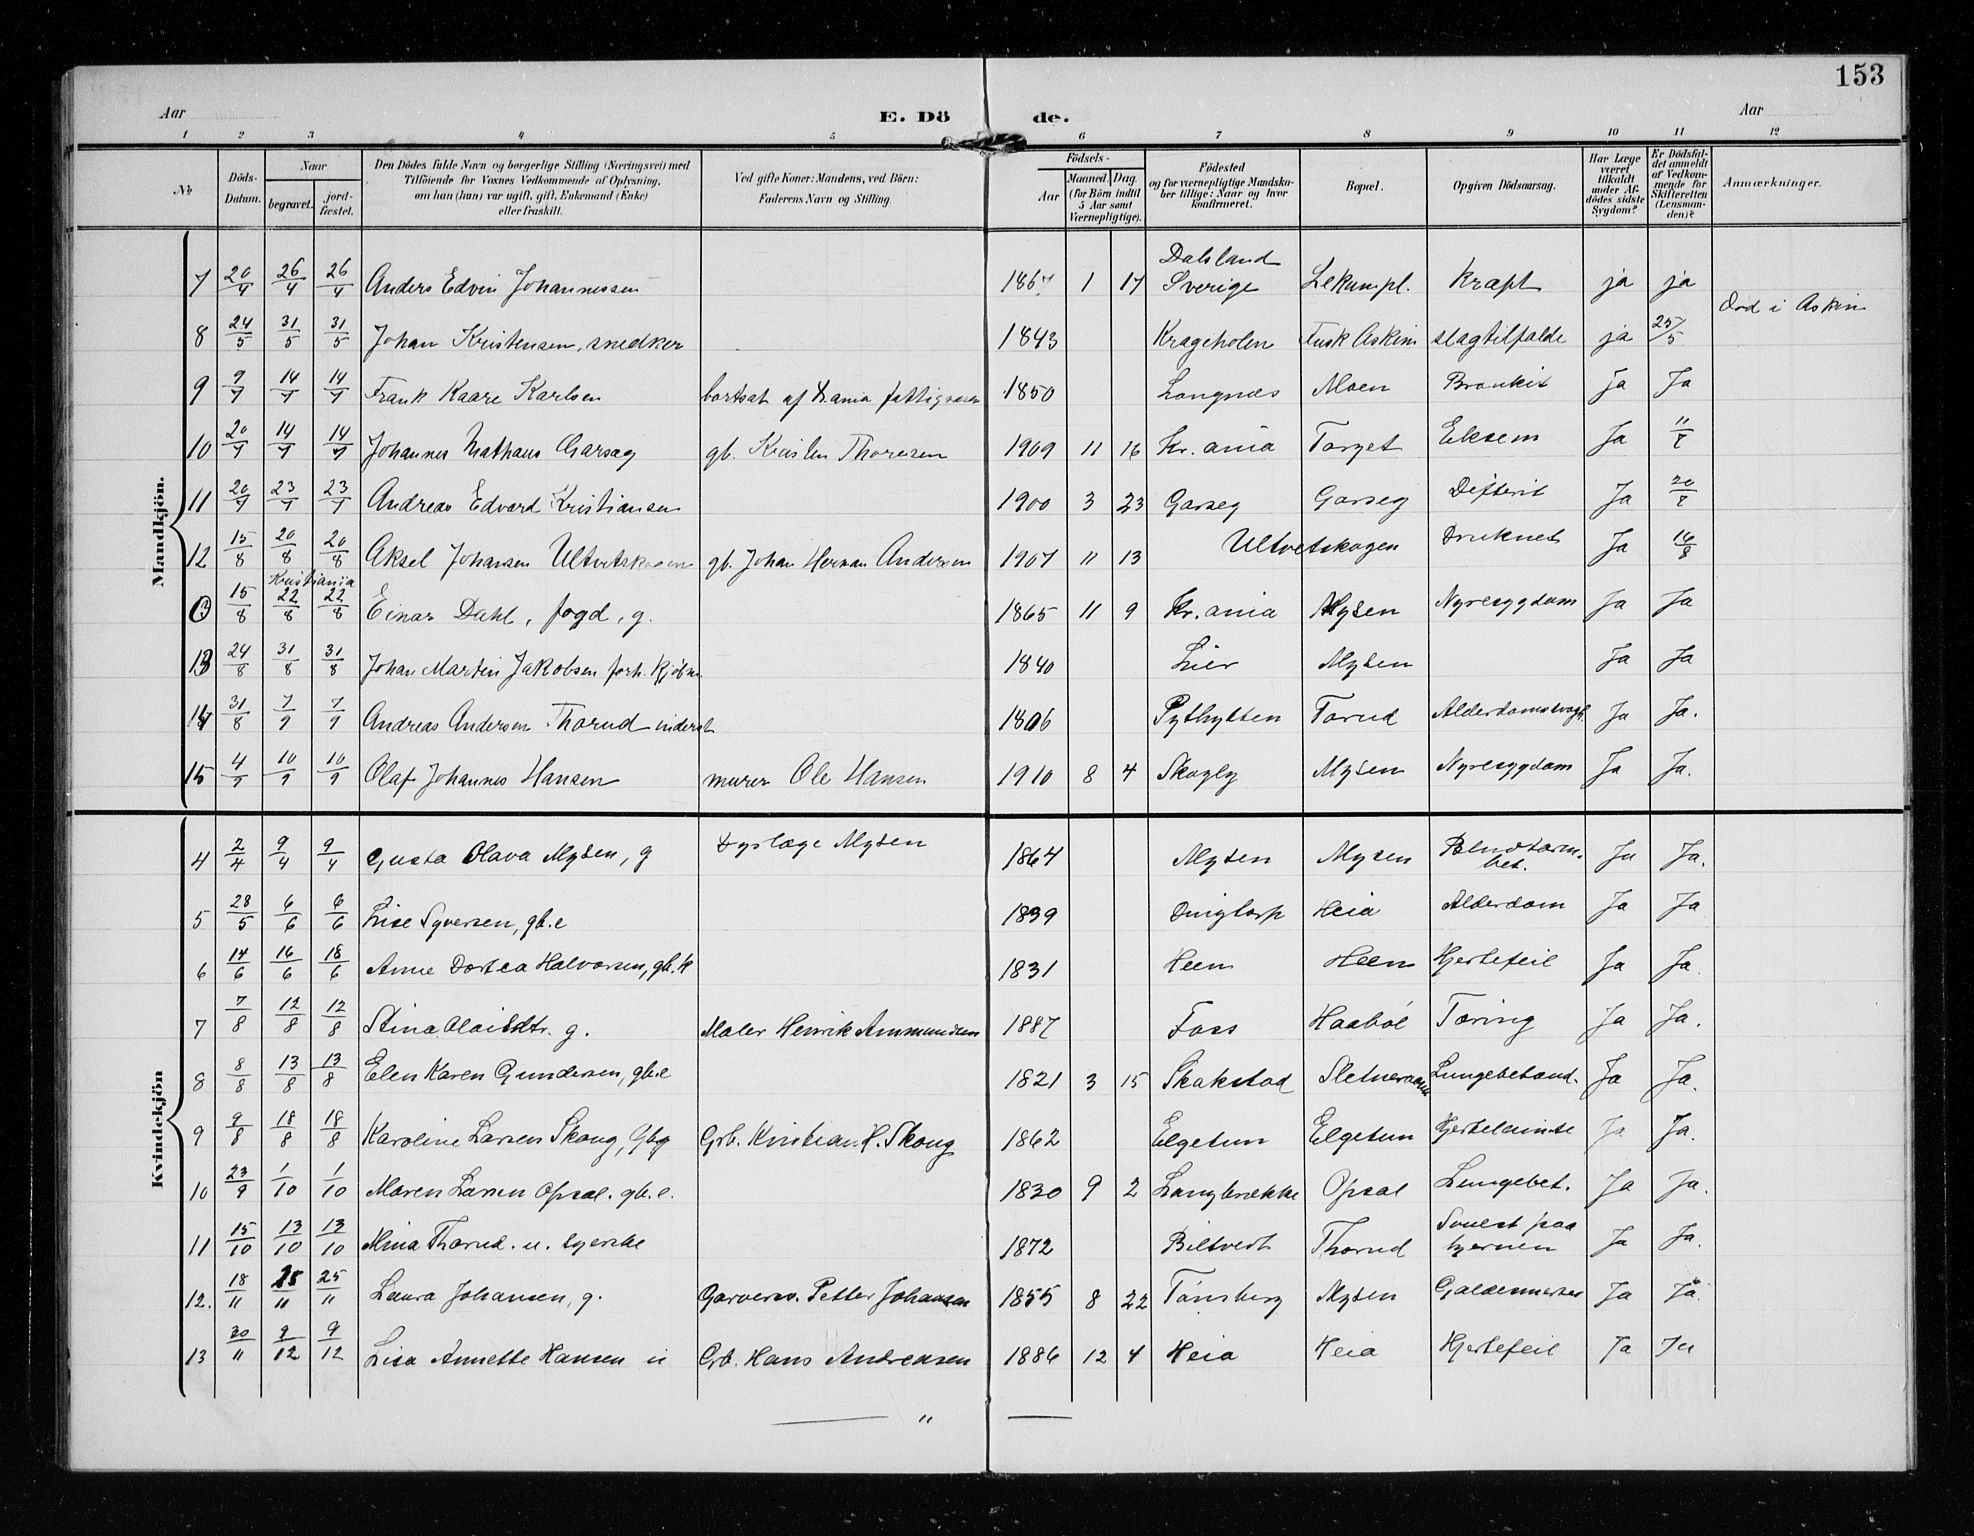 153
Aar E. Dö de. Aar
1 2 3 4 5 6 7 8 9 10 11 12
No Döds-Datum. Naar begravet. jord-fæstet. Den Dödes fulde Navn og borgerlige Stilling (Næringsvei) med Tilföiende for Voxnes Vedkommende af Oplysning, om han (hun) var ugift, gift, Enkemand (Enke) eller fraskilt. Ved gifte Koner: Mandens, ved Börn: Faderens Navn og Stilling. Födsels- Aar Maaned. Dag. (for Börn indtil 5 Aar samt Værnepligtige). Födested og for værnepligtige Mandska-ber tillige: Naar og hvor konfirmeret. Bopæl. Opgiven Dödsaarsag. Har Læge været tilkaldt under Af-dödes sidste Sygdom? Er Dödsfal-det anmeldt af Vedkom-mende for Skifteretten (Lensman-den)? Anmærkninger.
Mandkjön.
7 20/4 26/4 26/4 Anders Edvin Johannessen 1867 1 17 Dalsland Sverige Lekumpl. Kræft ja ja
8 24/5 31/5 31/5 Johan Kristensen, snedker 1843 Krageholen Fusk Askim slagtilfælde ja 25/5 Død i Askim
9 9/7 14/7 14/7 Frank Kaare Karlsen bortsat af Krania fattigvæsen 1850 Langnæs Moen Bronkit Ja Ja
10 20/7 14/7 14/7 Johannes Mathæus Garseg gb. Kristen Thoresen 1909 11 16 Kr.ania Torget Eksem Ja 11/7
11 20/7 23/7 23/7 Andreas Edvard Kristiansen 1900 3 23 Garseg Garseg Difterit Ja 20/7
12 15/8 20/8 20/8 Aksel Johansen Ultvetskogen gb. Johan Herman Andersen 1907 11 13 Ultvetskogen Druknet Ja 16/8
Kristiania
15/8 22/8 22/8 Einar Dahl, fogd, g. 1865 11 9 Kr.ania Mysen Nyresygdom Ja Ja
13 24/8 31/8 31/8 Johan Martin Jakobsen forh. Kjøbm 1840 Lier Mysen Ja Ja
14 31/8 7/9 7/9 Andreas Andersen Thorud inderst 1806 Pythytten Torud Alderdomssvagh. Ja Ja.
15 4/9 10/9 10/9 Olaf Johannes Hansen murer Ole Hansen 1910 8 4 Skogly Mysen Nyresygdom Ja Ja.
Kvindekjön
4 2/4 9/4 9/4 Gusta Olava Mysen, g Dyrlæge Mysen 1864 Mysen Mysen Blindtarm.bet. Ja Ja.
5 28/5 6/6 6/6 Lise Syversen, gb.e 1839 Duigtorp Heia Alderdom Ja Ja
6 14/6 16/6 18/6 Anne Dortea Halvorsen, gb. k 1831 Heen Heen Hjertefeil Ja Ja.
7 7/8 12/8 12/8 Stina Olaisdtr. g. Maler Henrik Ammundsen 1887 Foss Haabøl Tæring Ja Ja.
8 8/8 13/8 13/8 Elen Karen Gundersen, gb.e 1821 3 15 Skakstad Sletneræie Lungebetænd. Ja Ja.
9 9/8 18/8 18/8 Karoline Larsen Skoug, Gbg Grb. Kristian H. Skoug 1862 Elgetun Elgetun Hjertelamelse Ja Ja.
10 23/9 1/10 1/10 Maren Larsen Opsal. gb.e. 1830 9 2 Langbrække Opsal Lungebet. Ja Ja.
11 15/10 13/10 13/10 Mina Thorud. u. syerske 1872 Biltvedt Thorud Svulst paa hjernen Ja Ja.
12. 18/11 25/11 25/11 Laura Johansen, g. Garversv. Petter Johansen 1855 8 22 Tønsberg Mysen Galdesmerter Ja Ja
13 30/11 9/12 9/12 Lisa Annette Hansen u Grb. Hans Andreasen 1886 12 4 Heia Heia Hjertefeil Ja Ja
"